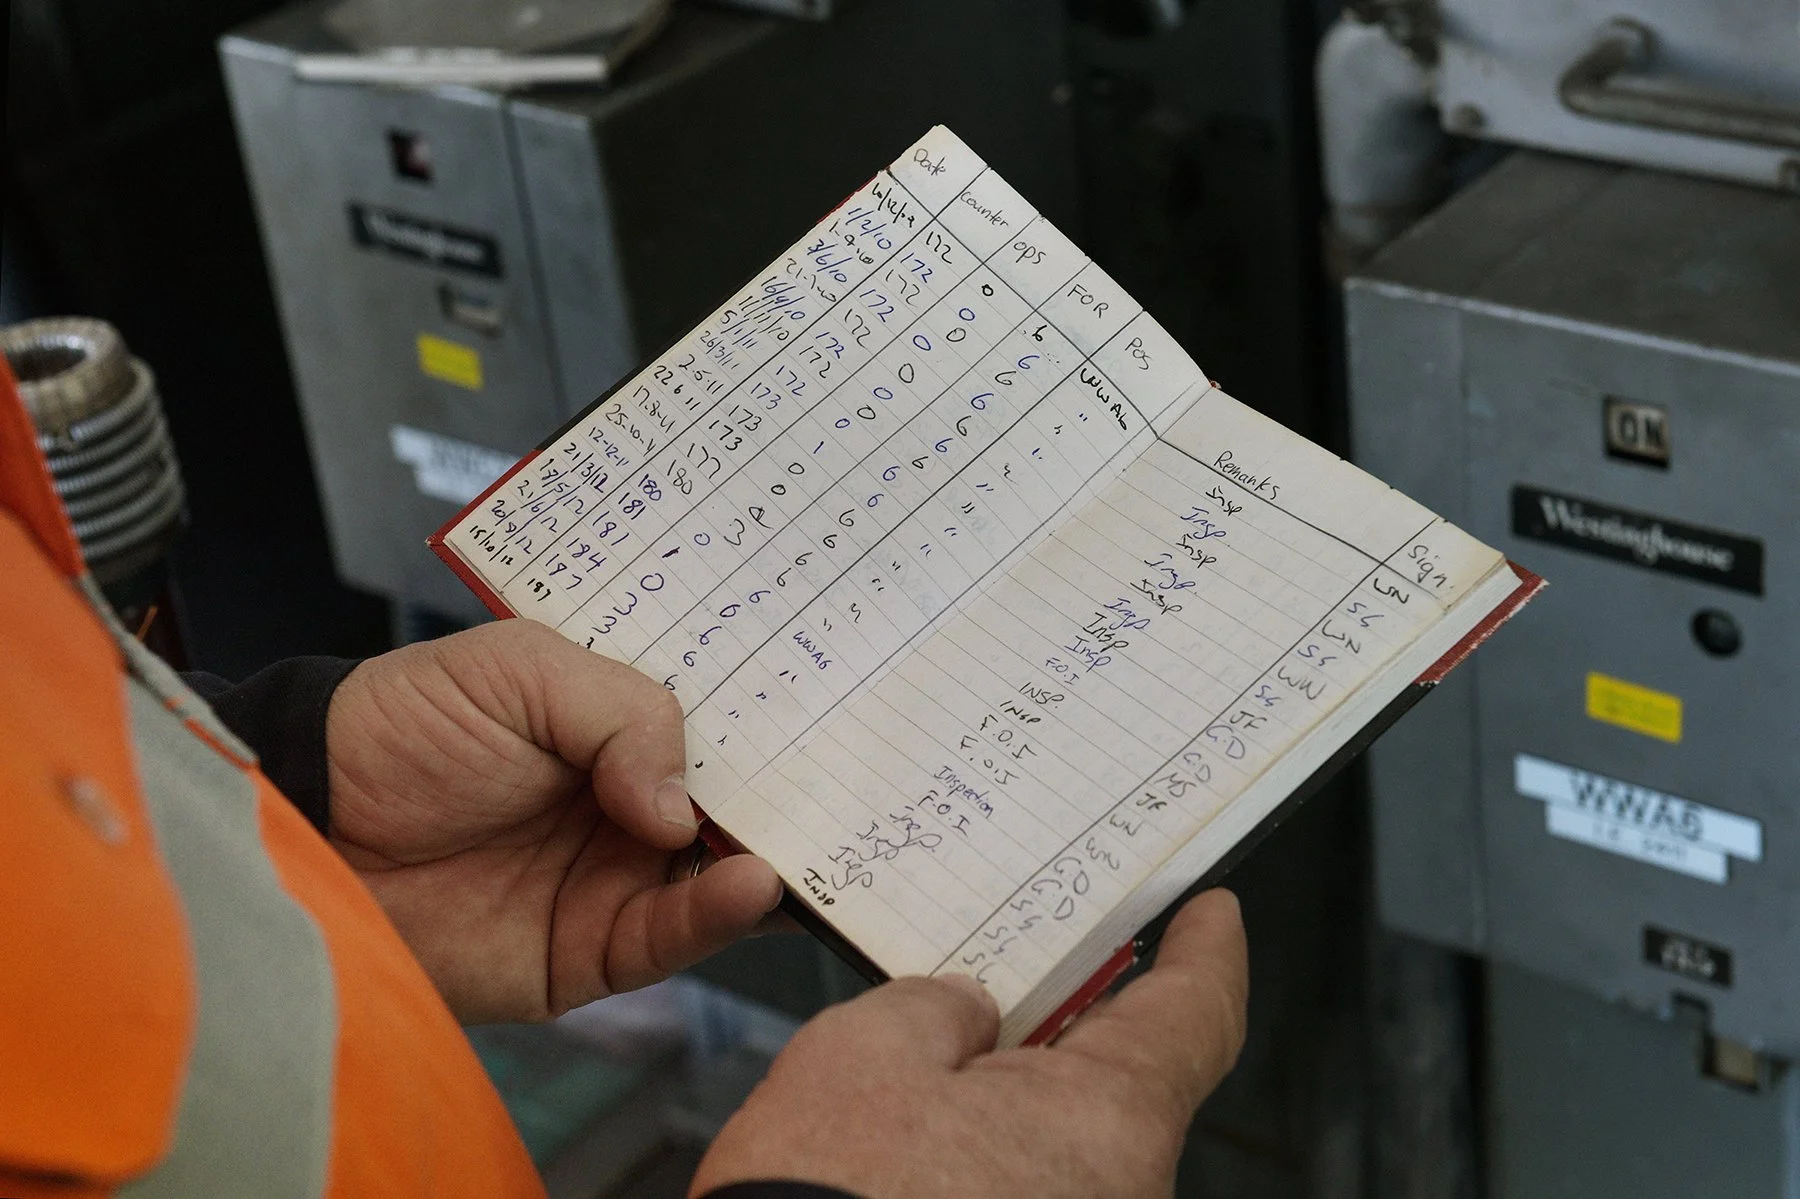 Date Counter OPS FOR POS Remarks Sign.
10/12/09 172 0 6 WWA6 Insp WN
1/2/10 172 0 6 " Insp SG
1-4-10 172 0 6 " Insp WN
3/6/10 172 0 6 " Insp SG
21-7-10 172 0 6 " Insp WN
16/9/10 172 0 6 " Insp SG
11/11/10 172 0 6 " Insp JF
5/1/11 172 0 6 " Insp G.D
26/3/11 173 1 6 " F.O.I G.D
2.5.11 173 0 6 " INSP. MS
22 6 11 173 0 6 " INSP JF
17.8.11 177 6 " F.O.I WN
25-10-11 180 3 6 " F.O.I WN
12-12-11 180 0 6 WWA6 Inspection G.D
21/3/12 181 1 6 " F.O.I G.D
18/5/12 181 0 6 " Insp SG
21/6/12 184 3 6 " Insp SG
20/8/12 187 3 6 " Insp SG
15/10/12 187 INSP
Westinghouse
ON
Westinghouse
WWA6